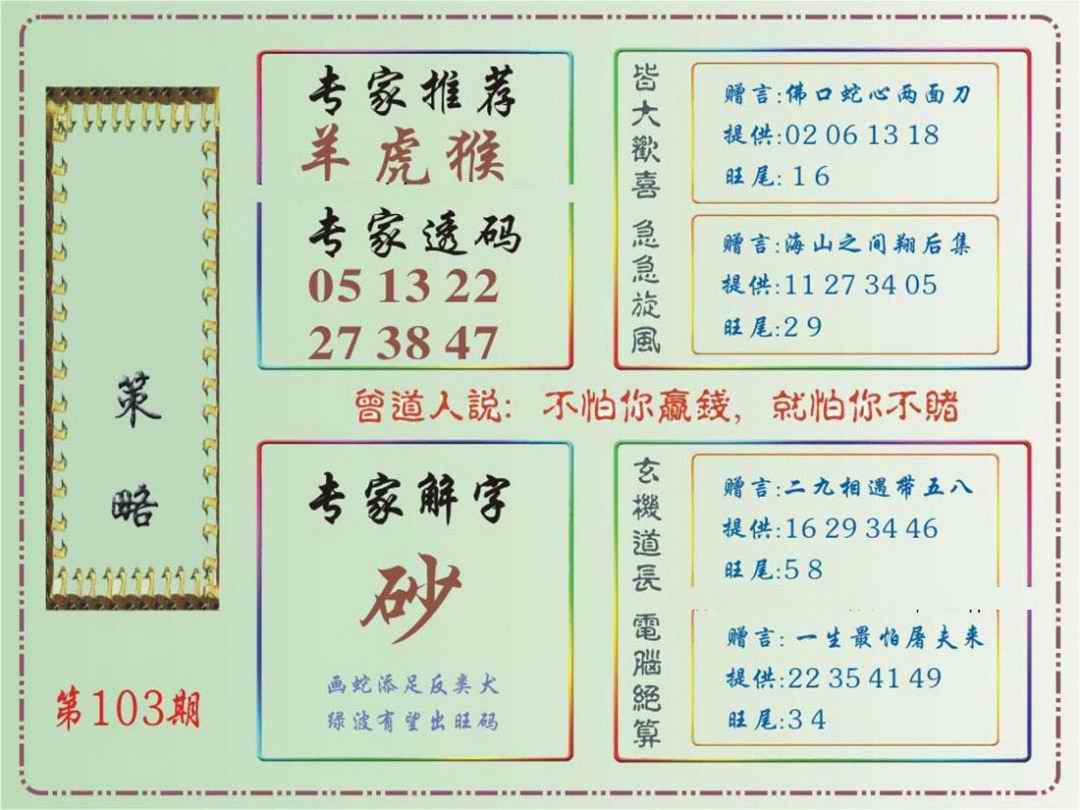 策略
第103期
专家推荐
羊虎猴
专家透码
05 13 22
27 38 47
皆大歡喜
赠言:佛口蛇心两面刀
提供:02 06 13 18
旺尾: 1 6
急急旋風
赠言:海山之间翔后集
提供:11 27 34 05
旺尾:2 9
曾道人説: 不怕你贏錢, 就怕你不賭
专家解字
砂
画蛇添足反类犬
绿波有望出旺码
玄機道長
赠言:二九相遇带五八
提供:16 29 34 46
旺尾:5 8
電腦絕算
赠言: 一生最怕屠夫来
提供:22 35 41 49
旺尾:3 4